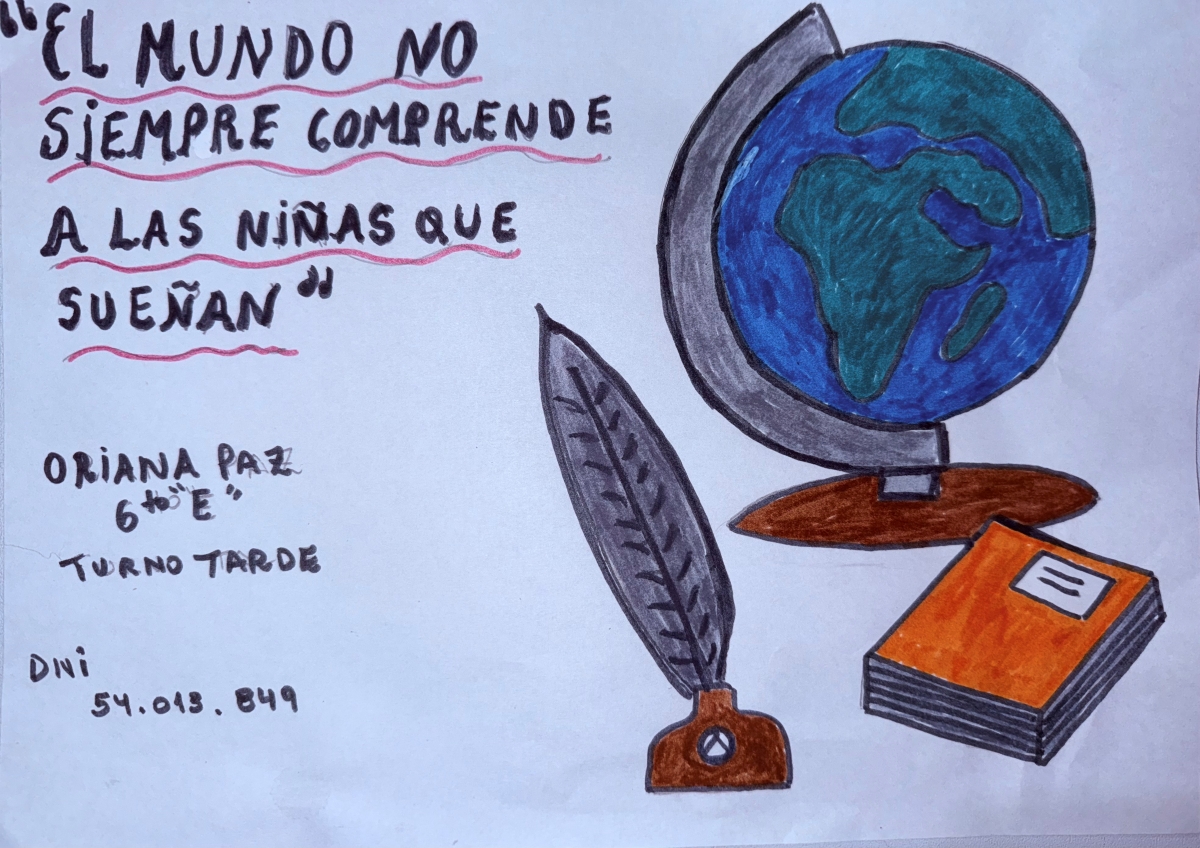 "EL MUNDO NO
SiEMPRE COMPRENDE
A LAS NiÑAS QUE
SUEÑAN"
ORiANA PAZ
6to "E"
TURNO TARDE
DNi
54.013.849